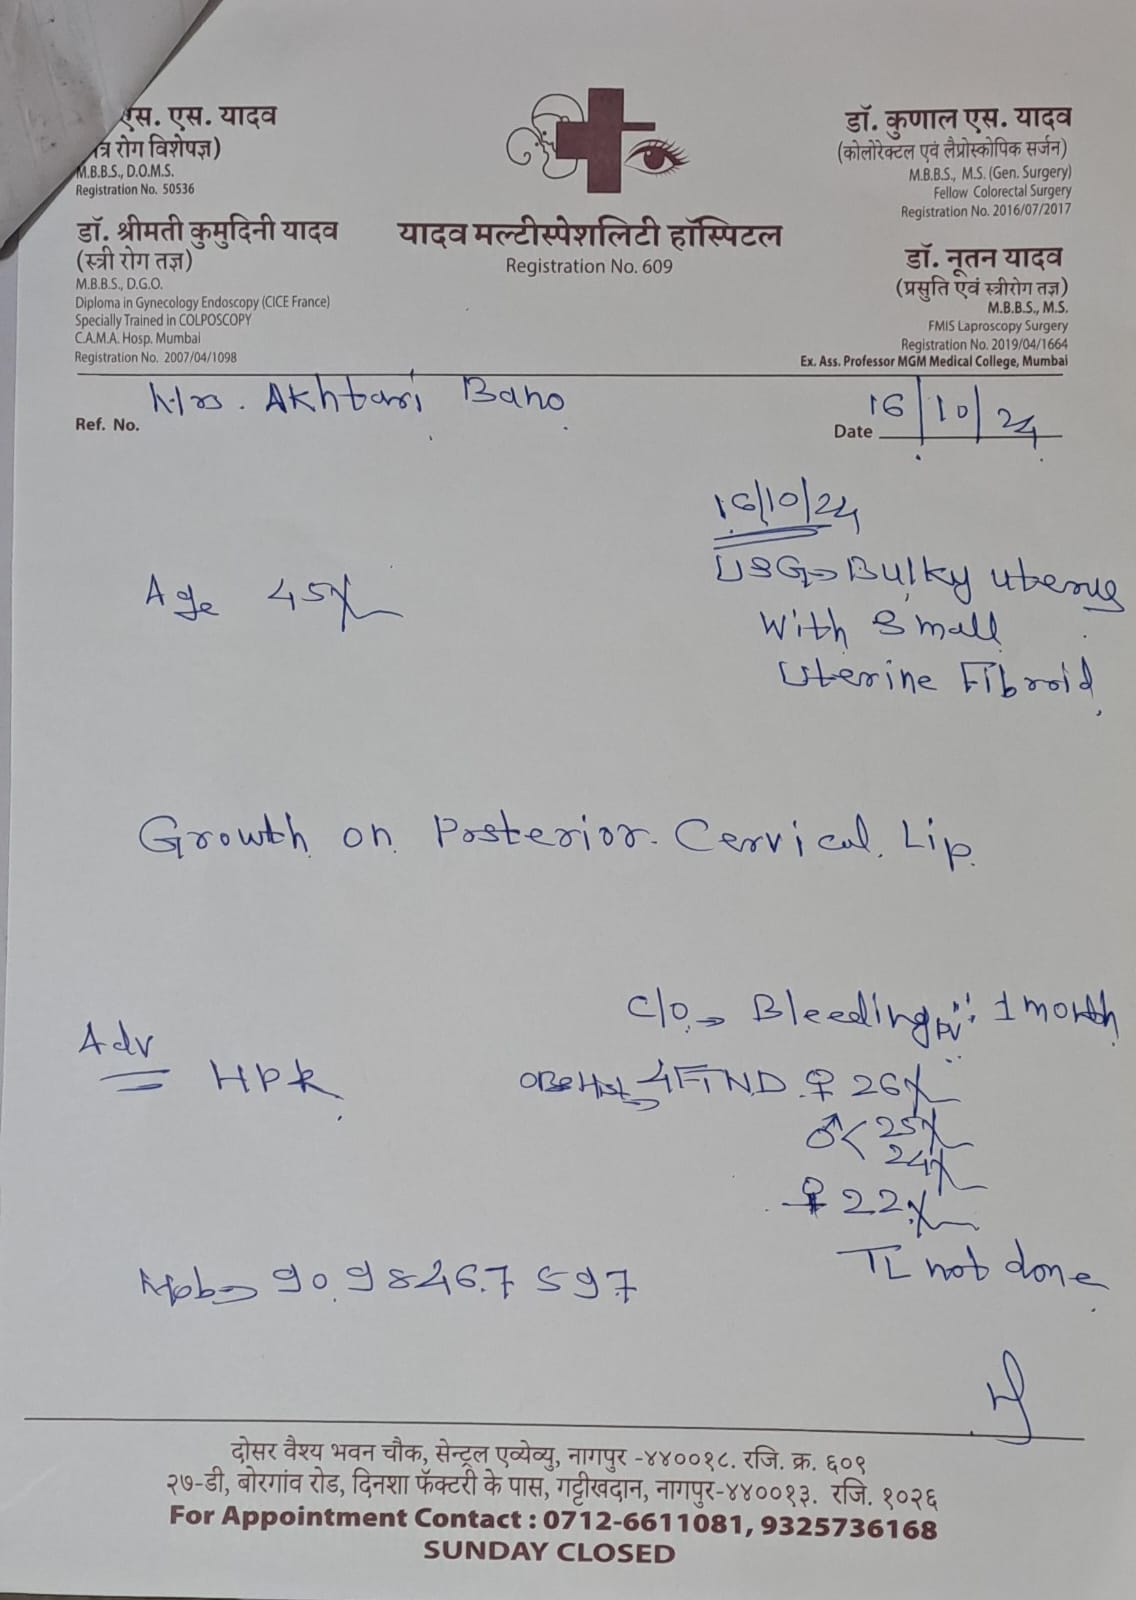 एस. एस. यादव
त्र रोग विशेषज्ञ)
M.B.B.S., D.O.M.S.
Registration No. 50536
डॉ. श्रीमती कुमुदिनी यादव
(स्त्री रोग तज्ञ)
M.B.B.S., D.G.O.
Diploma in Gynecology Endoscopy (CICE France)
Specially Trained in COLPOSCOPY
C.A.M.A. Hosp. Mumbai
Registration No. 2007/04/1098
यादव मल्टीस्पेशलिटी हॉस्पिटल
Registration No. 609
डॉ. कुणाल एस. यादव
(कोलोरेक्टल एवं लैप्रोस्कोपिक सर्जन)
M.B.B.S., M.S. (Gen. Surgery)
Fellow Colorectal Surgery
Registration No. 2016/07/2017
डॉ. नूतन यादव
(प्रसुति एवं स्त्रीरोग तज्ञ)
M.B.B.S., M.S.
FMIS Laproscopy Surgery
Registration No. 2019/04/1664
Ex. Ass. Professor MGM Medical College, Mumbai
Ref. No. Mrs. Akhtari Bano
Date 16/10/24
16/10/24
USG→ Bulky uterus
With Small
Uterine Fibroid
Age 45y
Growth on Posterior Cervical Lip
C/O → Bleeding PV ∵ 1 month
Adv
HPR
4FTND ♀ 26y
♂< 25y
24y
♀ 22y
TL not done
Mob→ 9098267597
दोसर वैश्य भवन चौक, सेन्ट्रल एव्येव्यु, नागपुर -४४००१८. रजि. क्र. ६०९
२७-डी, बोरगांव रोड, दिनशा फॅक्टरी के पास, गट्टीखदान, नागपुर-४४००१३. रजि. १०२६
For Appointment Contact : 0712-6611081, 9325736168
SUNDAY CLOSED